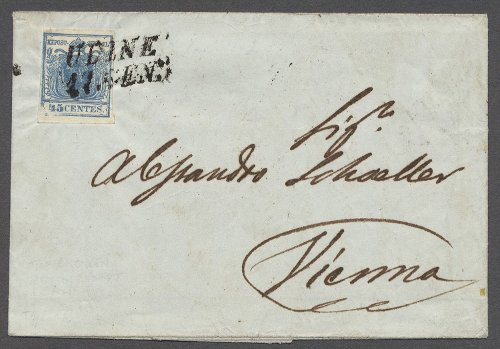 UDINE
11. GEN.
45 CENTES.
Sig.r
Alessandro Schoeller
Vienna